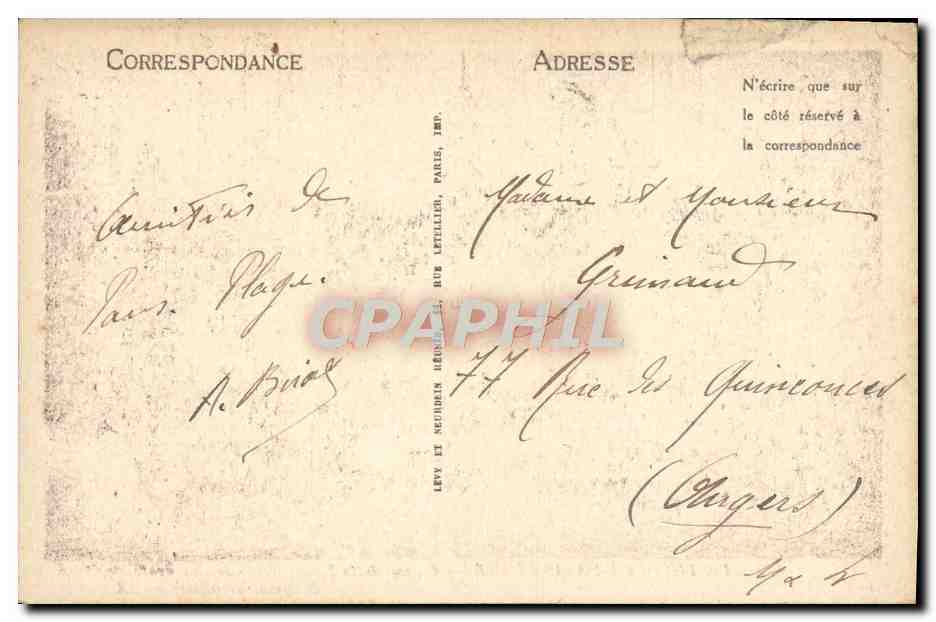 CORRESPONDANCE
ADRESSE
N'écrire que sur
le côté réservé à
la correspondance
Amitiés de
Paris Plage.
A.
LEVY ET NEURDEIN RÉUNIS, 44, RUE LETELLIER, PARIS, IMP.
Madame et Monsieur
Grimaud
77 Rue des Quinconces
(Angers)
M & L
CPAPHIL